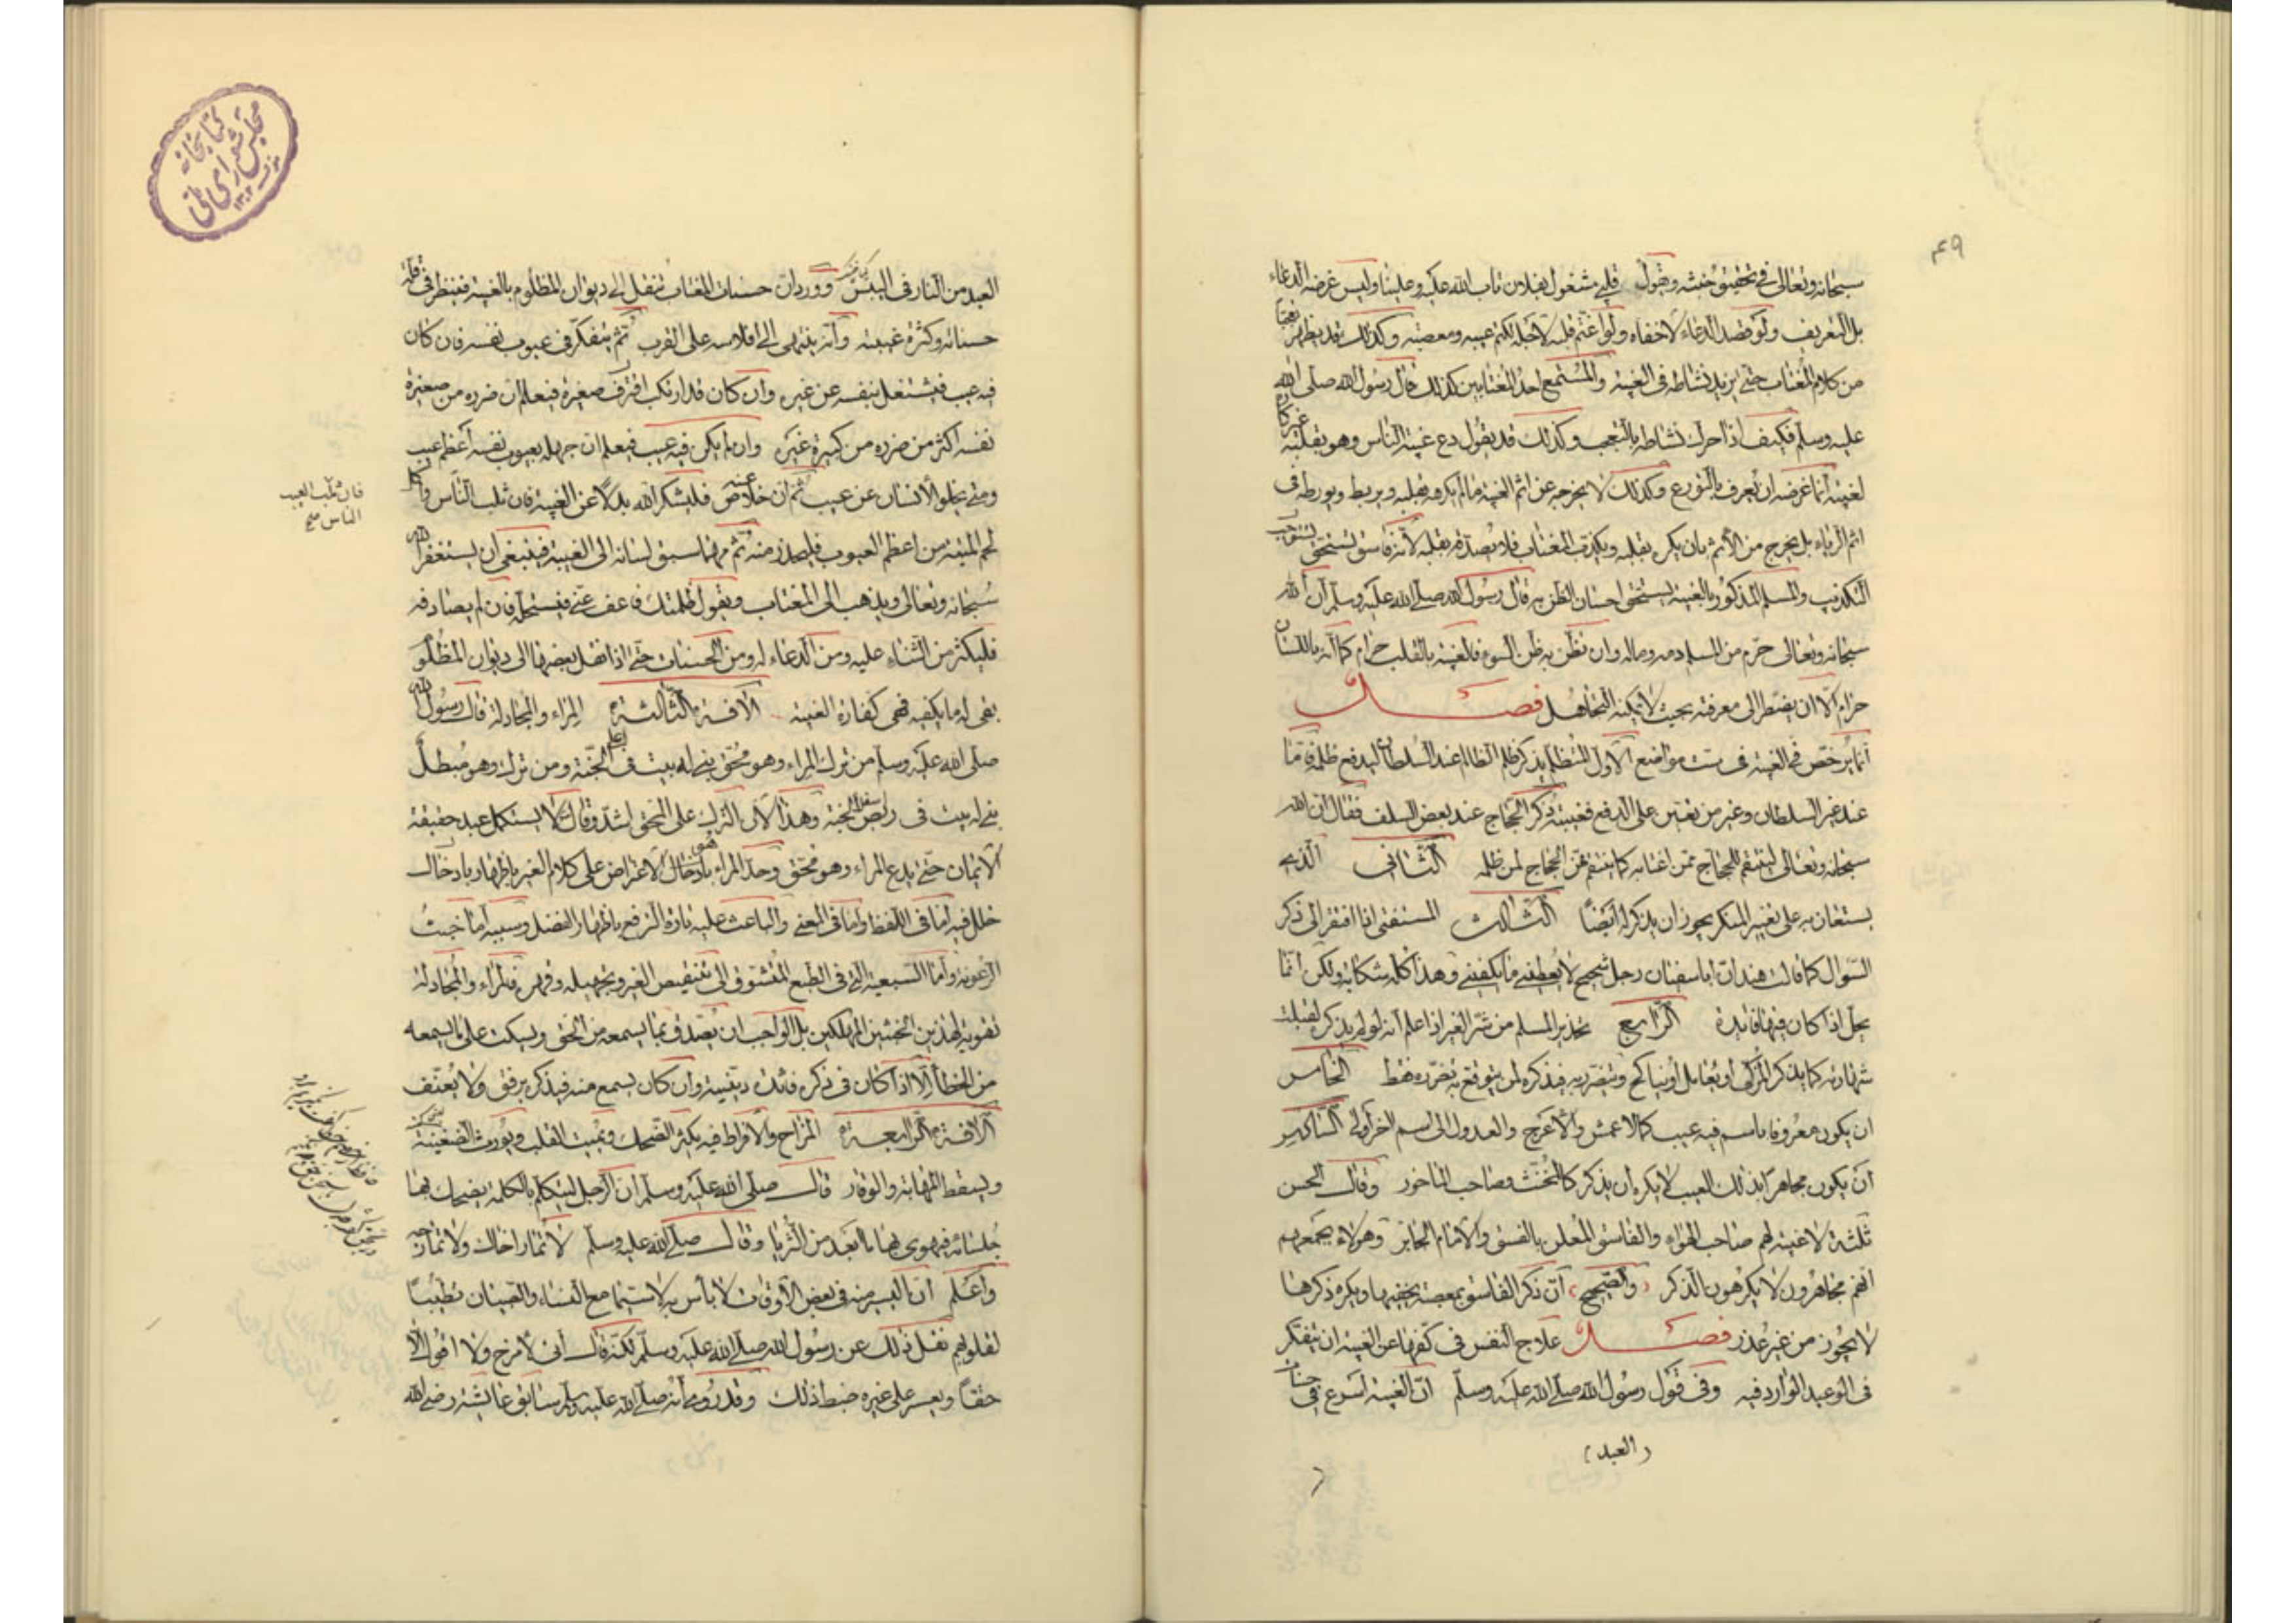 ۴۹
سبحانه وتعالى في تحقيق خبثه ويقول قلبي مشغول بفلان تاب الله عليه وعلينا وليس غرضه الدعاء
بل التعريف ولو قصد الدعاء لاخفاه ولو اغتم قلبه لاجله لكتم عيبه ومعصيته وكذلك قد يظهر تعجبا
من كلام المغتاب حتى يزيد نشاطه في الغيبة والمستمع احد المغتابين كذلك قال رسول الله صلى الله
عليه وسلم فكيف اذا حرك نشاطه بالتعجب وكذلك قد يقول دع غيبة الناس وهو بقلبه غير كاره
لغيبته انما غرضه ان يعرف بالتورع وكذلك لا يخرجه عن اثم الغيبة ما لم يكرهه بقلبه ويورطه في
اثم الرياء بل يخرج من الاثم بان يكره بقلبه ويكذب المغتاب فلا يصدقه بقلبه لانه فاسق يستحق
التكذيب والمسلم المذكور بالغيبة يستحق احسان الظن به قال رسول الله صلى الله عليه وسلم ان الله
سبحانه وتعالى حرم من المسلم دمه وماله وان تظن به ظن السوء فالغيبة بالقلب حرام كما انه باللسان
حرام الا ان يضطر الى معرفته بحيث لا يمكنه التجاهل فصل
انما يرخص في الغيبة في ست مواضع الاول المتظلم يذكر ظلم الظالم عند السلطان ليدفع ظلمه فاما
عند غير السلطان وغير من يعين على الدفع فغيبة ذكر الحجاج عند بعض السلف فقال ان الله
سبحانه وتعالى لينتقم للحجاج ممن اغتابه كما ينتقم من الحجاج لمن ظلمه الثاني الذي
يستعان به على تغيير المنكر يجوز ان يذكر له ايضا الثالث المستفتي اذا افتقر الى ذكر
السؤال كما قالت هند ان ابا سفيان رجل شحيح لا يعطيني ما يكفيني وهذا كله شكاية ولكن انما
يحل اذا كان فيها فايدة الرابع تحذير المسلم من شر الغير اذا علم انه لو لم يذكره لقبلت
شهادته كما يذكر المزكي او يعامل او يناكح ويتضرر به فيذكره لمن يتوقع به تضرره فقط الخامس
ان يكون معروفا باسم فيه عيب كالاعمش والاعرج والعدول الى اسم اخر اولى السادس
ان يكون مجاهرا بذلك العيب لا يكره ان يذكر كالمخنث وصاحب الماخور وقال الحسن
ثلثة لا غيبة لهم صاحب الهواء والفاسق المعلن بالفسق والامام الجاير وهولاء يجمعهم
انهم مجاهرون لا يكرهون الذكر والصحيح ان ذكر الفاسق بمعصية يخفيها ويكره ذكرها
لا يجوز من غير عذر فصل علاج النفس في كفها عن الغيبة ان يتفكر
في الوعيد الوارد فيه وفي قول رسول الله صلى الله عليه وسلم ان الغيبة اسرع في حسنات
(العبد)
كتابخانه
مجلس شورای ملی
۱۳۰۲
العبد من النار في اليبس وورد ان حسنات المغتاب تنقل الى ديوان المظلوم بالغيبة فينظر في قلة
حسناته وكثرة غيبته وانه ينتهي الى افلاسه على القرب ثم يتفكر في عيوب نفسه فان كان
فيه عيب فيشتغل بنفسه عن غيره وان كان قد ارتكب اقترف صغيرة فيعلم ان ضرره من صغيرة
نفسه اكثر من ضرره من كبيرة غيره وان لم يكن فيه عيب فيعلم ان جهله بعيوب نفسه اعظم عيب
ومتى يخلو الانسان عن عيب ثم ان خلا عنه فليشكر الله بدلا عن الغيبة فان ثلب الناس واكل
فان ثلب العيب
الناس صح
لحم الميتة من اعظم العيوب فليحذر منه ثم مهما سبق لسانه الى الغيبة فينبغي ان يستغفر الله
سبحانه وتعالى ويذهب الى المغتاب ويقول ظلمتك فاعف عني فيستحله فان لم يصادفه
فليكثر من الثناء عليه ومن الدعاء له ومن الحسنات حتى اذا نقل بعضها الى ديوان المظلوم
بقي له ما يكفيه فهي كفارة الغيبة الافة الثالثة المراء والمجادلة قال رسول الله
صلى الله عليه وسلم من ترك المراء وهو محق بني له بيت في اعلى الجنة ومن ترك وهو مبطل
بني له بيت في ربض الجنة وهذا لان الترك على المحق اشد وقال لا يستكمل عبد حقيقة
الايمان حتى يدع المراء وهو محق وحد المراء هو الاعتراض على كلام الغير باظهار وبادخال
خلل فيه اما في اللفظ واما في المعنى والباعث عليه تارة الترفع باظهار الفضل وسببه اما خبث
الرعونة واما السبعية التي في الطبع المتشوق الى تنقيص الغير وتجهيله وقهره فالمراء والمجادلة
تقوية لهذين الخبثين المهلكين بل الواجب ان يصدق بما يسمعه من الحق ويسكت على ما يسمعه
من الخطأ الا اذا كان في ذكره فائدة دينية وان كان يسمع منه فيذكره برفق ولا يعنف
الافة الرابعة المزاح والافراط فيه يكثر الضحك ويميت القلب ويورث الضغينة
ويسقط المهابة والوقار قال صلى الله عليه وسلم ان الرجل ليتكلم بالكلمة يضحك بها
جلسائه فيهوي بها ابعد من الثريا وقال صلى الله عليه وسلم لا تمار اخاك ولا تمازحه
واعلم ان اليسير منه في بعض الاوقات لا باس به لا سيما مع النساء والصبيان تطييبا
لقلوبهم نقل ذلك عن رسول الله صلى الله عليه وسلم لكنه قال اني لامزح ولا اقول الا
حقا ويعسر على غيره ضبط ذلك وقد روي انه صلى الله عليه وسلم سابق عائشة رضي الله